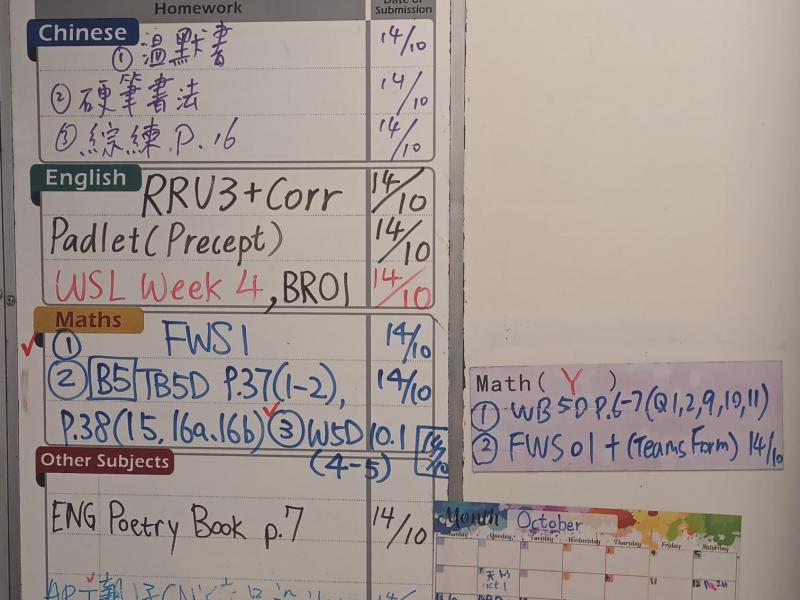 Homework Date of Submission
Chinese
① 溫默書 14/10
② 硬筆書法 14/10
③ 綜練 P.16 14/10
English
RRV3+Corr 14/10
Padlet(Precept) 14/10
WSL Week 4, BR01 14/10
Maths
① FWS1 14/10
② B5 TB5D P.37(1-2), 14/10
P.38(15, 16a.16b) ③ W5D 10.1 14/10
(4-5)
Other Subjects
ENG Poetry Book p.7 14/10
Math( Y )
① WB5D P.6-7(Q1,2,9,10,11)
② FWS01 + (Teams Form) 14/10
Month October
Monday Tuesday Wednesday Thursday Friday Saturday